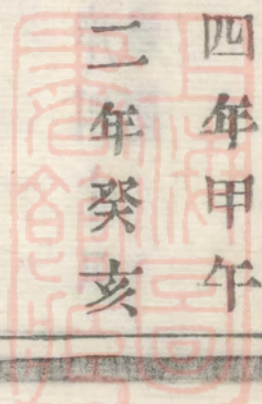 四年甲午
二年癸亥